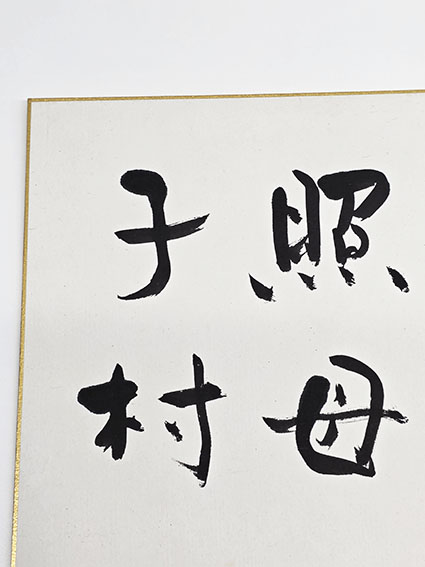 照母
子村